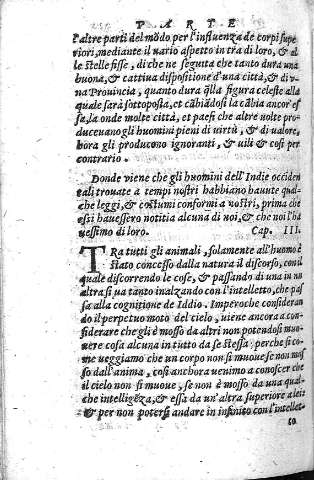 PARTE
l'altre parti del mōdo per l'influenza de corpi supe
riori, mediante il uario aspetto in tra di loro, & al
le stelle fisse, di che ne seguita che tanto dura una
buona, & cattiua dispositione d'una città, & di u-
na Prouincia, quanto dura q̄lla figura celeste alla
quale sarà sottoposta, et cābiādosi la cābia ancor'es
sa, la onde molte città, et paesi che altre uolte pro-
duceuano gli huomini pieni di uirtù, & di ualore,
hora gli producono ignoranti, & uili & cosi per
contrario.
Donde viene che gli huomini dell'Indie occiden
tali trouate a tempi nostri habbiano haunte qual-
che leggi, & costumi conformi a nostri, prima che
essi hauessero notitia alcuna di noi, & che noi l'ha
uessimo di loro. Cap. III.
TRa tutti gli animali, solamente all'huomo è
stato concesso dalla natura il discorso, con il
quale discorrendo le cose, & passando di una in un
altra si ua tanto inalzando con l'intelletto, che pas
sa alla cognitione de Iddio. Imperoche consideran
do il perpetuo moto del cielo, uiene ancora a con-
siderare che gli è mosso da altri non potendosi muo
uere cosa alcuna in tutto da se stessa: perche si co-
me ueggiamo che un corpo non si muoue se non mos
so dall'anima, cosi anchora uenimo a conoscer che
il cielo non si muoue, se non è mosso da una qual-
che intelligēza, & essa da un'altra superiore a lei:
& per non potersi andare in infinito con l'intellet-
to